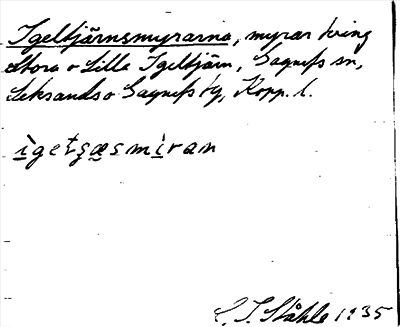 Igeltjärnsmyrarna, myrar kring
Stora o Lilla Igeltjärn, Gagnefs sn,
Leksands o Gagnefs tg, Kopp. l.
ìgetʂæsmìran
C. I. Ståhle 1935